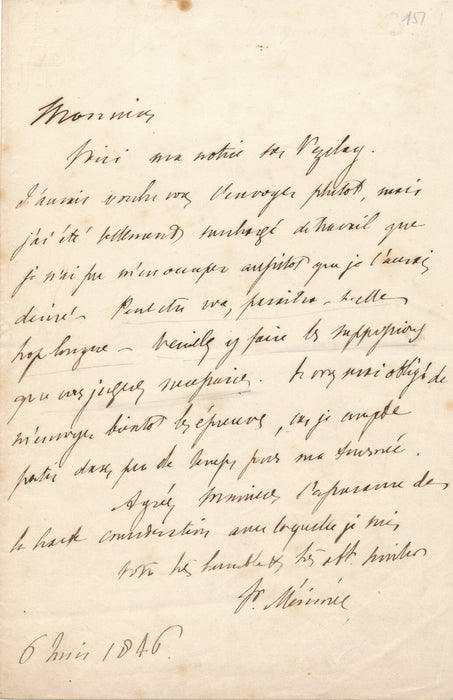 151
Monsieur
Voici ma notice sur Vezelay.
J'aurais voulu vous l'envoyer plutot, mais
j'ai été tellement surchargé de travail que
je n'ai pu m'en occuper aussitot que je l'aurais
désiré - Peut etre vous paraitra-t-elle
trop longue - Veuillez y faire les suppressions
que vous jugerez necessaires. Je vous serai obligé de
m'envoyer bientot les épreuves, car je compte
partir dans peu de temps pour ma tournée.
Agréez Monsieur l'expression de
la haute consideration avec laquelle je suis
votre très humble & très obt. serviteur
Pr. Mérimée
6 Juin 1846.